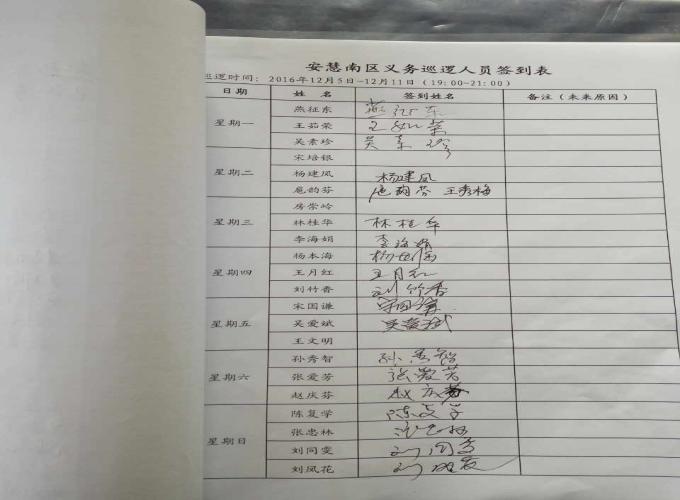 安慧南区义务巡逻人员签到表
巡逻时间：2016年12月5日-12月11日（19:00-21:00）
日期 姓名 签到姓名 备注（未来原因）
星期一
燕征东 燕征东
王茹荣 王茹荣
吴素珍 吴素珍
星期二
宋培银
杨建凤 杨建凤
扈韵芬 扈韵芬 王秀梅
星期三
房崇岭
林桂华 林桂华
李海娟 李海娟
星期四
杨本海 杨本海
王月红 王月红
刘竹香 刘竹香
星期五
宋国谦 宋国谦
吴爱斌 吴爱斌
王文明
星期六
孙秀智 孙秀智
张爱芳 张爱芳
赵庆芬 赵庆芬
星期日
陈复学 陈复学
张忠林
刘同雯 刘同雯
刘凤花